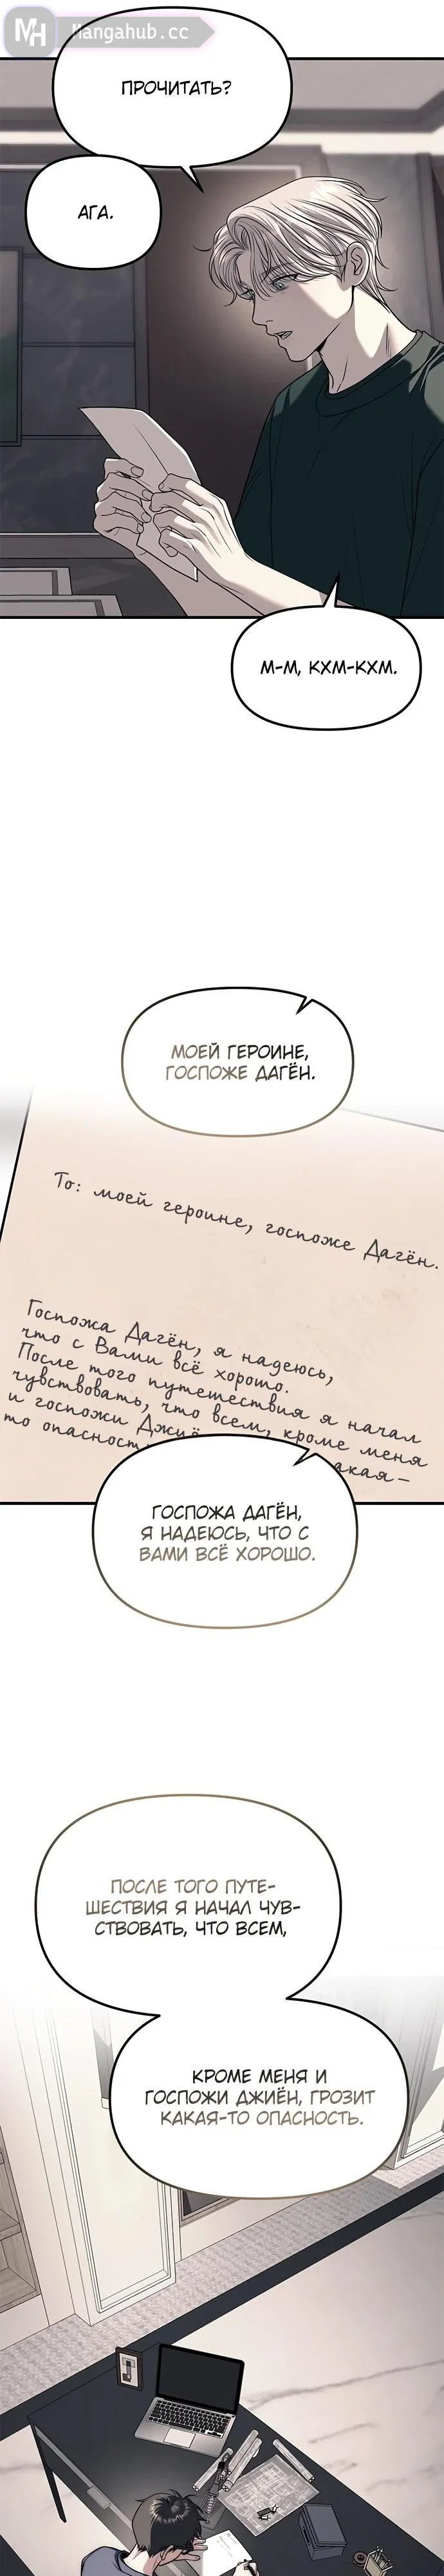 MH Mangahub.cc
ПРОЧИТАТЬ?
АГА.
М-М, КХМ-КХМ.
МОЕЙ ГЕРОИНЕ,
ГОСПОЖЕ ДАГЁН.
To: моей героине, госпоже Дагён.
Госпожа Дагён, я надеюсь,
что с Вами всё хорошо.
После того путешествия я начал
чувствовать, что всем, кроме меня
и госпожи Джиё акая-
то опасност
ГОСПОЖА ДАГЁН,
Я НАДЕЮСЬ, ЧТО С
ВАМИ ВСЁ ХОРОШО.
ПОСЛЕ ТОГО ПУТЕ-
ШЕСТВИЯ Я НАЧАЛ ЧУВ-
СТВОВАТЬ, ЧТО ВСЕМ,
КРОМЕ МЕНЯ И
ГОСПОЖИ ДЖИЁН, ГРОЗИТ
КАКАЯ-ТО ОПАСНОСТЬ.